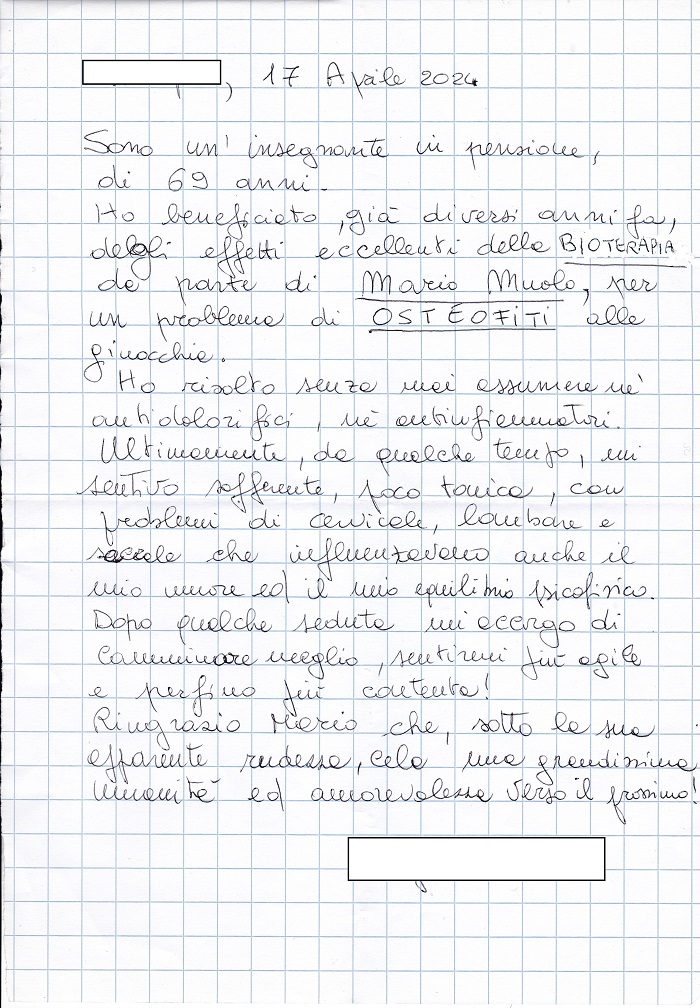 , 17 Aprile 2024
Sono un' insegnante in pensione,
di 69 anni.
Ho beneficiato, già diversi anni fa,
degli effetti eccellenti della BIOTERAPIA
da parte di Mario Muolo, per
un problema di OSTEOFITI alle
ginocchia.
Ho risolto senza mai assumere nè
antidolorifici, nè antinfiammatori.
Ultimamente, da qualche tempo, mi
sentivo sofferente, poco tonica, con
problemi di cervicale, lombare e
sacrale che influenzavano anche il
mio umore ed il mio equilibrio psicofisico.
Dopo qualche seduta mi accorgo di
camminare meglio, sentirmi più agile
e perfino più contenta!
Ringrazio Mario che, sotto la sua
apparente rudezza, cela una grandissima
umanità ed amorevolezza verso il prossimo!